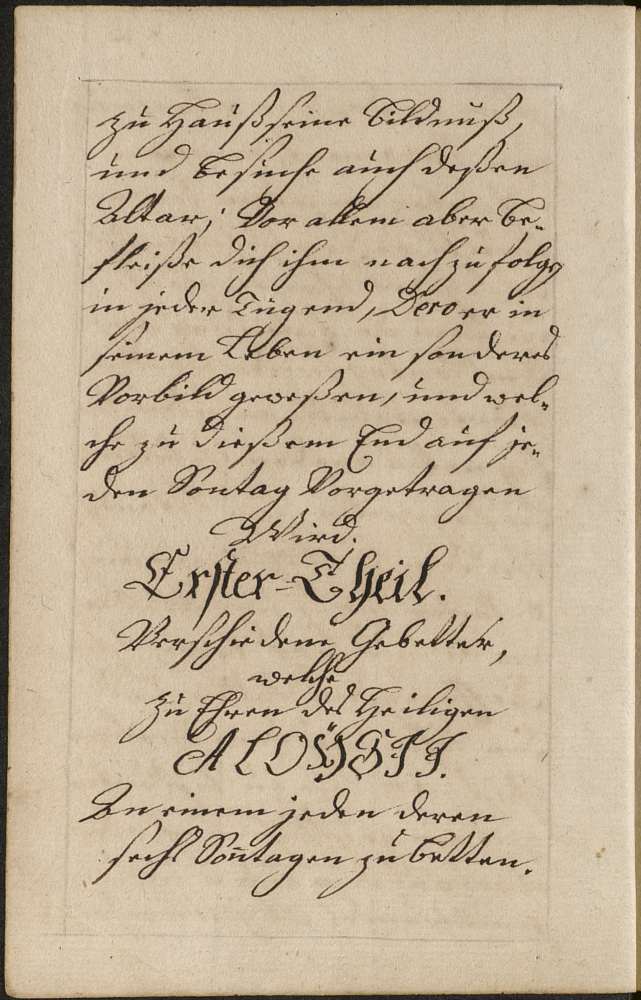 zu Hauß seine Bildnuß,
und besuche auch deßen
Altar; Vor allem aber be-
fleiße dich ihm nachzufolgen
in jeder Tugend, Dero er in
seinem Leben ein sonderes
Vorbild geweßen, und wel-
che zu dießem End auf je-
den Sontag Vorgetragen
Wird.
Erster-Theil.
Verschiedene Gebetter,
welche
zu Ehren des Heiligen
ALOÿSII.
An einem jeden deren
sechs Sontagen zu betten.